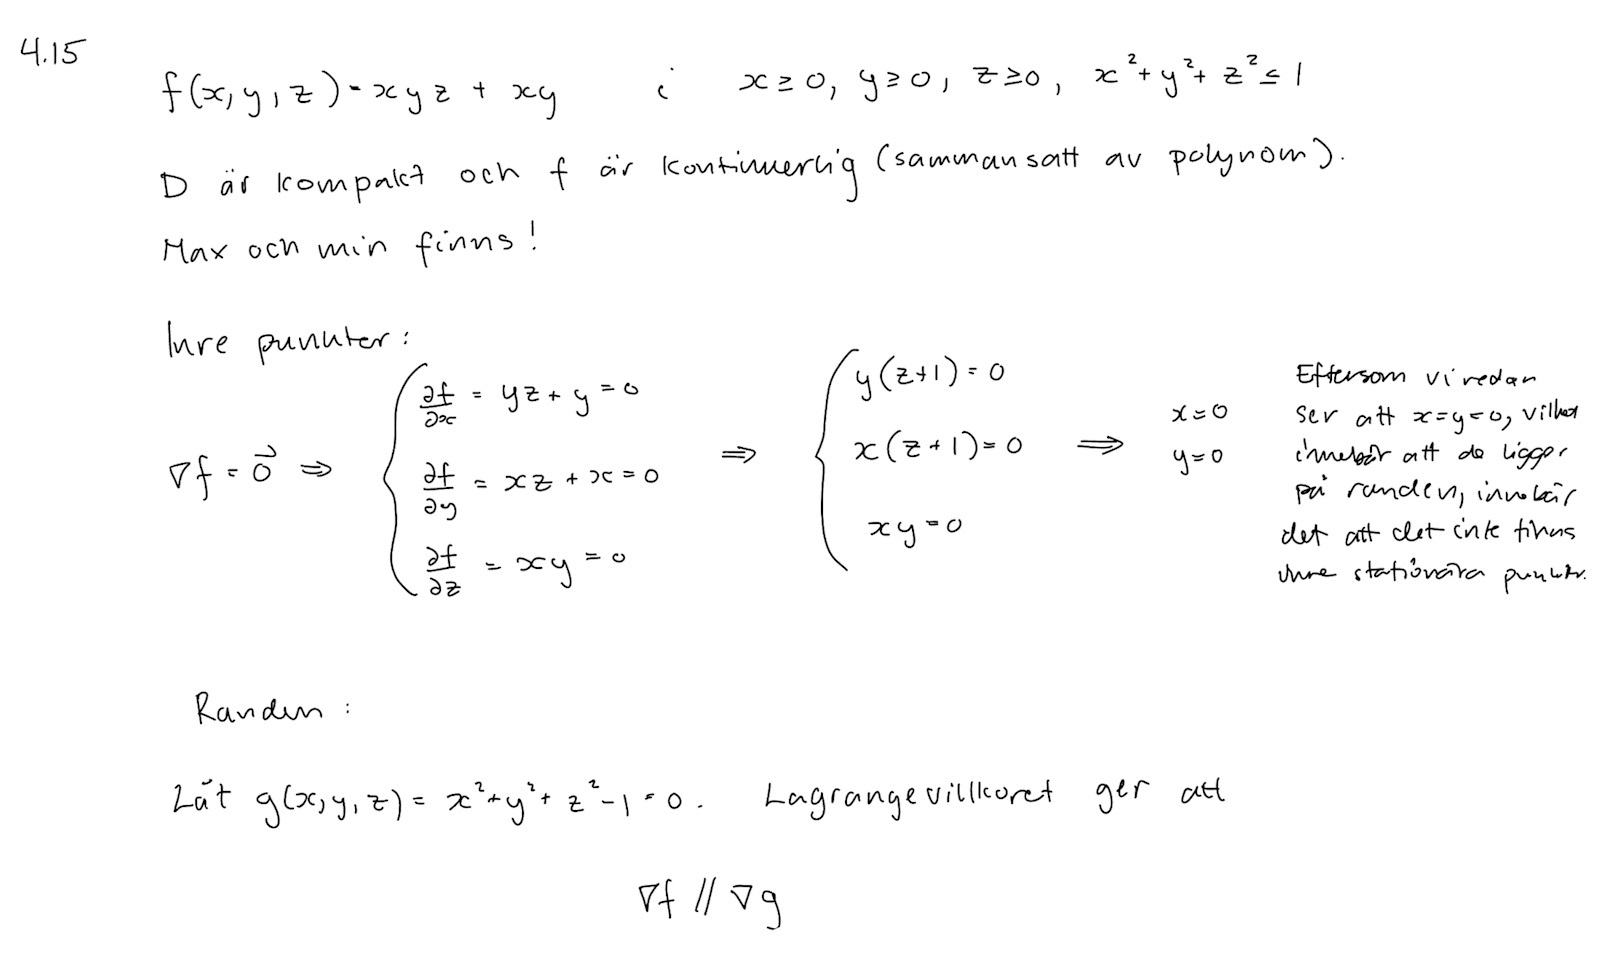 4.15
f(x,y,z) = xyz + xy i x≥0, y≥0, z≥0, x²+y²+z²≤1
D är kompakt och f är kontinuerlig (sammansatt av polynom).
Max och min finns!
Inre punkter:
∇f = 0⃗ ⇒ { ∂f/∂x = yz + y = 0 ⇒ { y(z+1) = 0
∂f/∂y = xz + x = 0 x(z+1) = 0 ⇒ x=0
∂f/∂z = xy = 0 xy = 0 y=0
Eftersom vi redan
ser att x=y=0, vilket
innebär att de ligger
på randen, innebär
det att det inte finns
inre stationära punkter.
Randen:
Låt g(x,y,z) = x²+y²+z²-1 = 0. Lagrangevillkoret ger att
∇f // ∇g